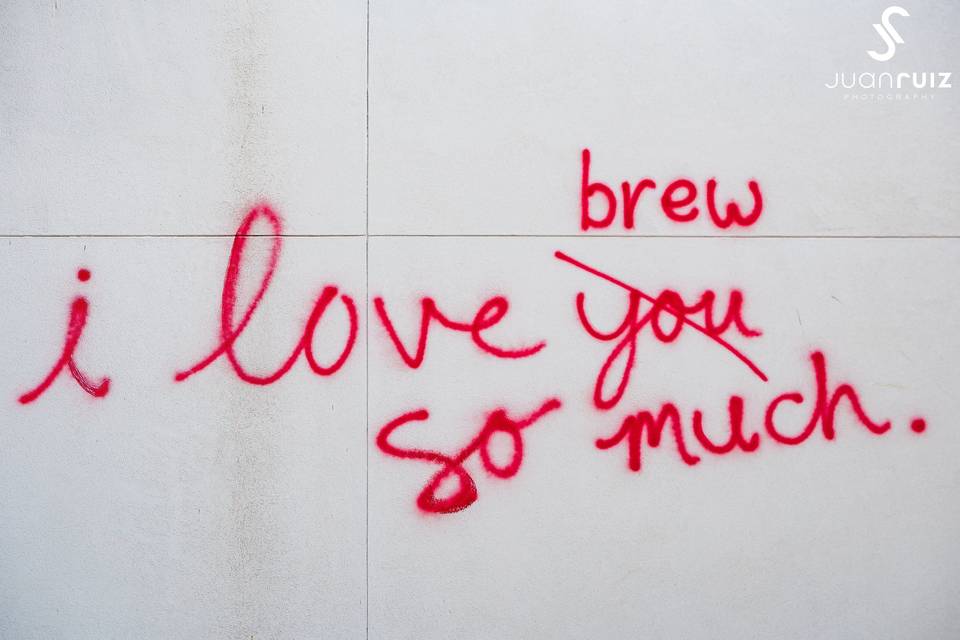 JUANRUIZ
PHOTOGRAPHY
brew
i love you
so much.